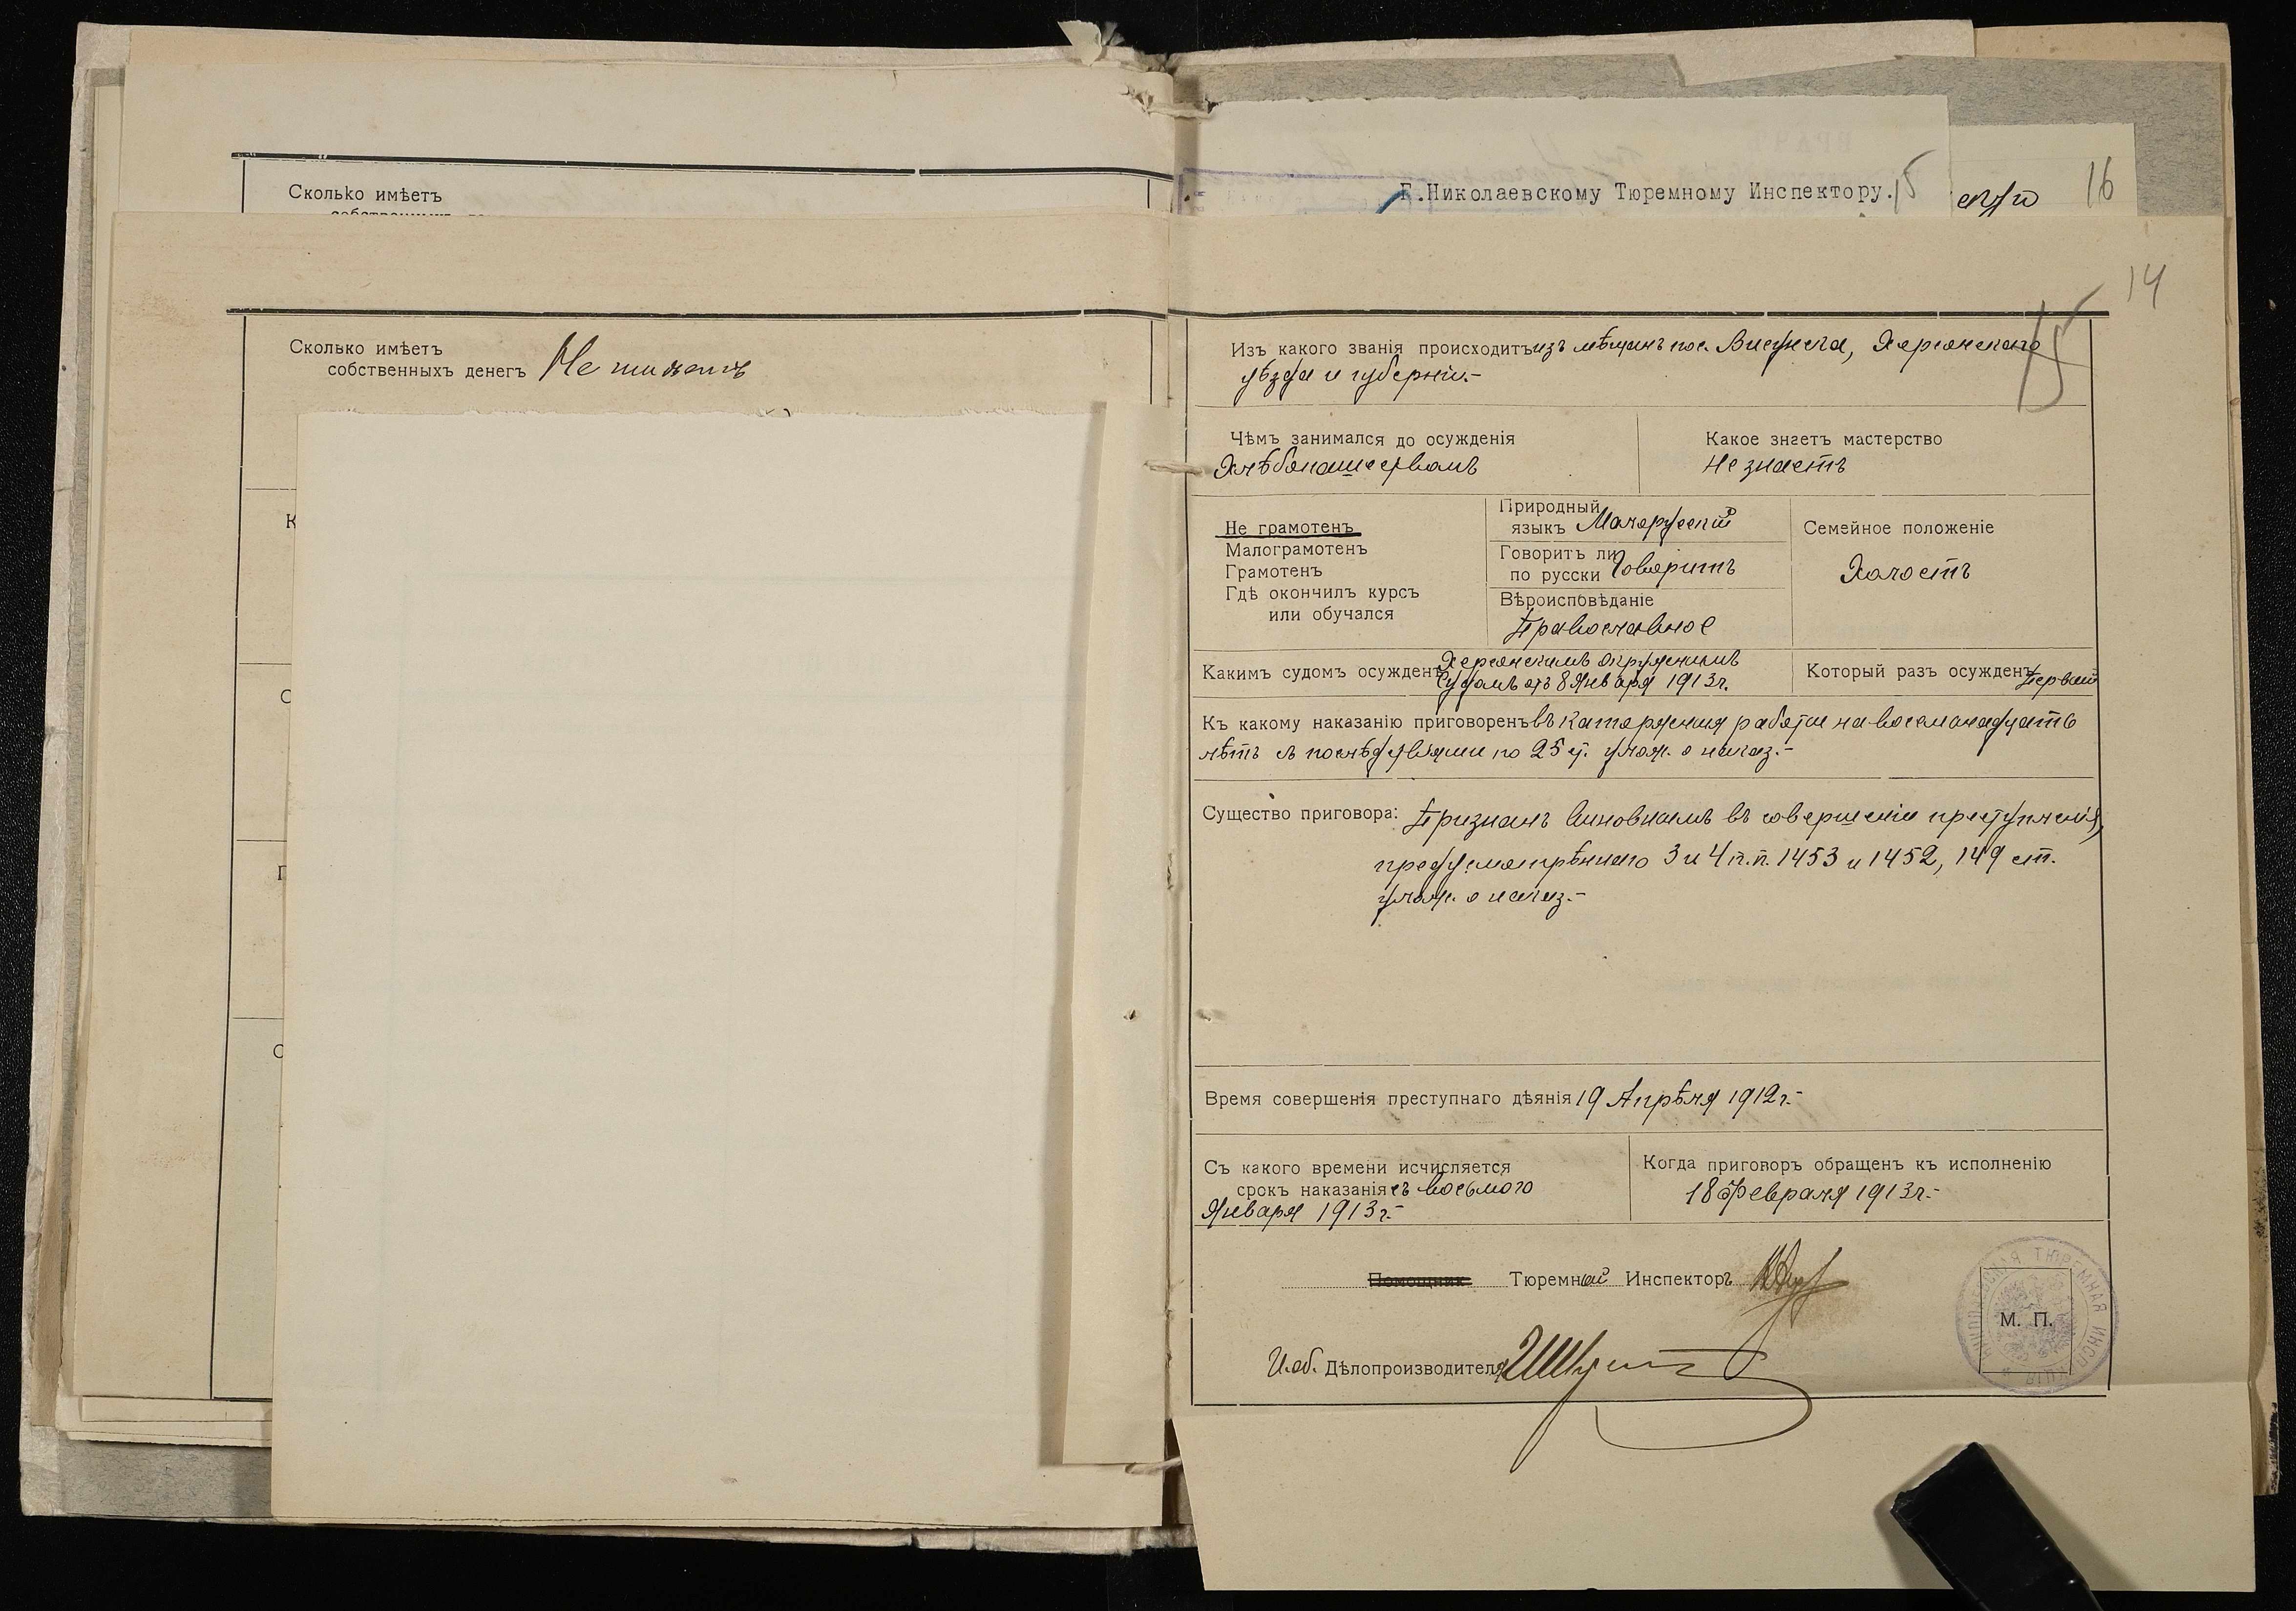 Сколько имѣетъ
Г.Николаевскому Тюремному Инспектору.
15
16
14
15
Сколько имѣетъ
собственныхъ денегъ Не имѣетъ
К
С
П
С
Изъ какого званія происходитъ изъ мѣщанъ пос. Висунска, Херсонскаго
уѣзда и губерніи.-
Чѣмъ занимался до осужденія
Хлѣбопашествомъ
Какое знаетъ мастерство
не знаетъ
Не грамотенъ
Малограмотенъ
Грамотенъ
Гдѣ окончилъ курсъ
или обучался
Природный
языкъ Малорусскій
Говоритъ ли
по русски Говоритъ
Вѣроисповѣданіе
Православное
Семейное положеніе
Холостъ
Какимъ судомъ осужденъ Херсонскимъ Окружнымъ
Судомъ отъ 8 Января 1913 г.
Который разъ осужденъ Первый
Къ какому наказанію приговоренъ въ каторжныя работы на восемнадцать
лѣтъ съ послѣдствіями по 25 ст. улож. о наказ.-
Существо приговора: Признанъ виновнымъ въ совершеніи преступленія,
предусмотрѣннаго 3 и 4 п.п. 1453 и 1452, 149 ст.
улож. о наказ.-
Время совершенія преступнаго дѣянія 19 Апрѣля 1912 г.-
Съ какого времени исчисляется
срокъ наказанія съ восьмого
Января 1913 г.-
Когда приговоръ обращенъ къ исполненію
18 Февраля 1913 г.-
Помощникъ Тюремный Инспекторъ
М. П.
И. об. Дѣлопроизводителя